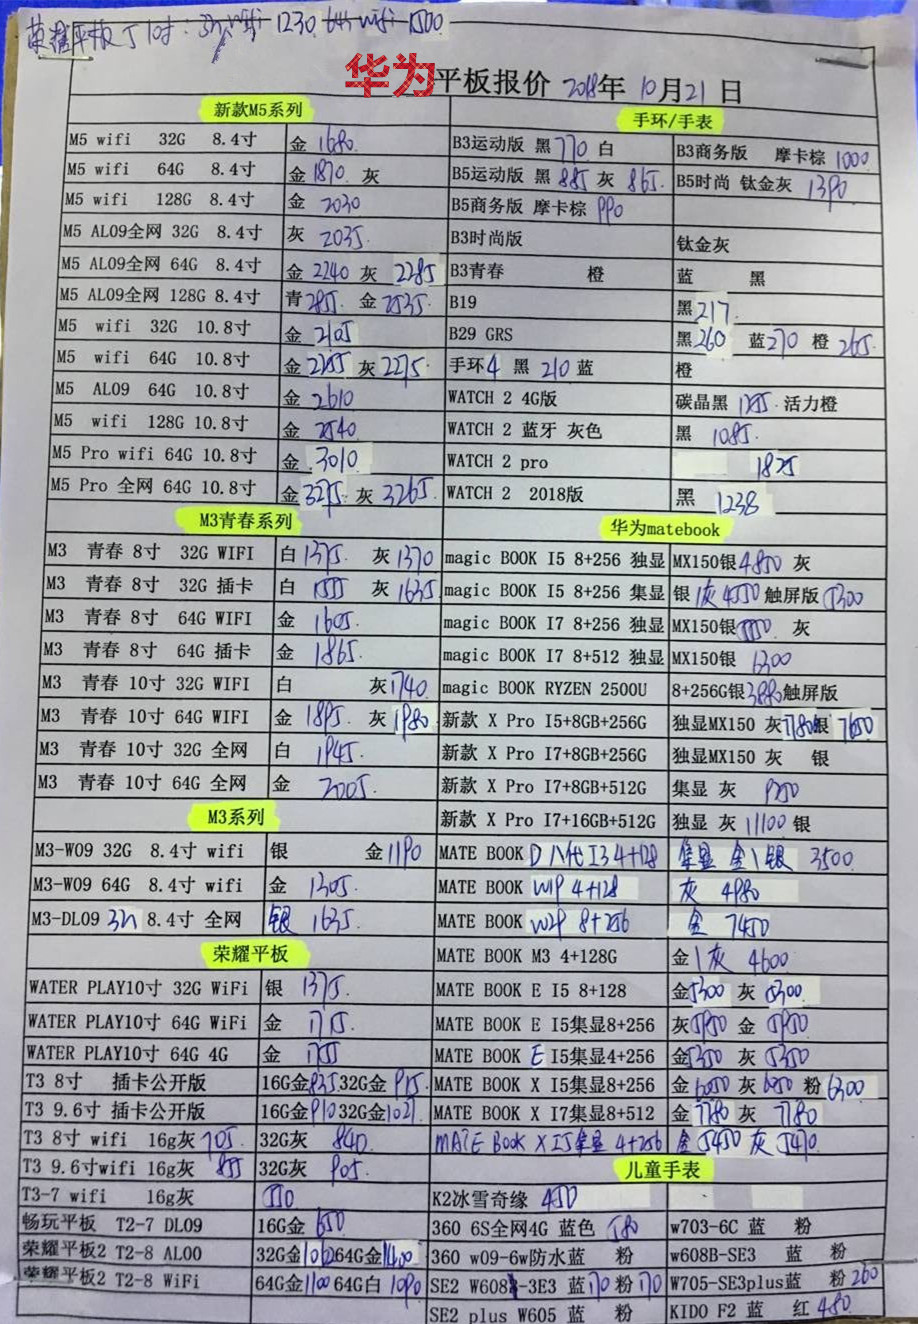 荣耀平板J 10寸: 3n wifi 1230. 64n wifi 1500.
华为平板报价 2018年 10月21日
新款M5系列 手环/手表
M5 wifi 32G 8.4寸 金 1680. B3运动版 黑 770 白 B3商务版 摩卡棕 1000
M5 wifi 64G 8.4寸 金 1870. 灰 B5运动版 黑 885 灰 865. B5时尚 钛金灰 1390
M5 wifi 128G 8.4寸 金 2030 B5商务版 摩卡棕 990
M5 AL09全网 32G 8.4寸 灰 2035. B3时尚版 钛金灰
M5 AL09全网 64G 8.4寸 金 2240 灰 2285 B3青春 橙 蓝 黑
M5 AL09全网 128G 8.4寸 青 285. 金 2535. B19 黑 217
M5 wifi 32G 10.8寸 金 2105 B29 GRS 黑 260 蓝 270 橙 265.
M5 wifi 64G 10.8寸 金 灰 2275. 手环4 黑 210 蓝 橙
M5 AL09 64G 10.8寸 金 2610 WATCH 2 4G版 碳晶黑 活力橙
M5 wifi 128G 10.8寸 金 2540 WATCH 2 蓝牙 灰色 黑 1085.
M5 Pro wifi 64G 10.8寸 金 3010 WATCH 2 pro 1825
M5 Pro 全网 64G 10.8寸 金 3275. 灰 3265. WATCH 2 2018版 黑 1238
M3青春系列 华为matebook
M3 青春 8寸 32G WIFI 白 1375. 灰 1370 magic BOOK I5 8+256 独显 MX150银 4850 灰
M3 青春 8寸 32G 插卡 白 1555 灰 1635 magic BOOK I5 8+256 集显 银 灰 4550 触屏版 5300
M3 青春 8寸 64G WIFI 金 1605. magic BOOK I7 8+256 独显 MX150银 5550 灰
M3 青春 8寸 64G 插卡 金 1865. magic BOOK I7 8+512 独显 MX150银 6300
M3 青春 10寸 32G WIFI 白 灰 1740 magic BOOK RYZEN 2500U 8+256G银 3880 触屏版
M3 青春 10寸 64G WIFI 金 1895. 灰 1980 新款 X Pro I5+8GB+256G 独显MX150 灰 7780 银 7650
M3 青春 10寸 32G 全网 白 1945. 新款 X Pro I7+8GB+256G 独显MX150 灰 银
M3 青春 10寸 64G 全网 金 2005. 新款 X Pro I7+8GB+512G 集显 灰 9250
M3系列 新款 X Pro I7+16GB+512G 独显 灰 11100 银
M3-W09 32G 8.4寸 wifi 银 金 1190 MATE BOOK D 八代I3 4+128 集显 金\银 3500
M3-W09 64G 8.4寸 wifi 金 1305. MATE BOOK W19 4+128 灰 4980
M3-DL09 3n 8.4寸 全网 银 1635. MATE BOOK W29 8+256 金 7450
荣耀平板 MATE BOOK M3 4+128G 金\灰 4600
WATER PLAY10寸 32G WiFi 银 1375. MATE BOOK E I5 8+128 金 5300 灰 5300.
WATER PLAY10寸 64G WiFi 金 1715. MATE BOOK E I5集显8+256 灰 5950 金 5950
WATER PLAY10寸 64G 4G 金 1755 MATE BOOK E I5集显4+256 金 5350 灰 5350
T3 8寸 插卡公开版 16G金 835 32G金 915. MATE BOOK X I5集显8+256 金 6050 灰 6050 粉 6300
T3 9.6寸 插卡公开版 16G金 910 32G金 1021. MATE BOOK X I7集显8+512 金 7780 灰 7780
T3 8寸 wifi 16g灰 705. 32G灰 840. MATE BOOK X I5集显 4+256 金 5450 灰 5470.
T3 9.6寸wifi 16g灰 855 32G灰 905. 儿童手表
T3-7 wifi 16g灰 550 K2冰雪奇缘 450
畅玩平板 T2-7 DL09 16G金 650 360 6S全网4G 蓝色 580 w703-6C 蓝 粉
荣耀平板2 T2-8 AL00 32G金 64G金 1400 360 w09-6w防水蓝 粉 w608B-SE3 蓝 粉
荣耀平板2 T2-8 WiFi 64G金 1100 64G白 1090 SE2 W608-3E3 蓝 170 粉 170 W705-SE3plus蓝 粉 260
SE2 plus W605 蓝 粉 KIDO F2 蓝 红 480